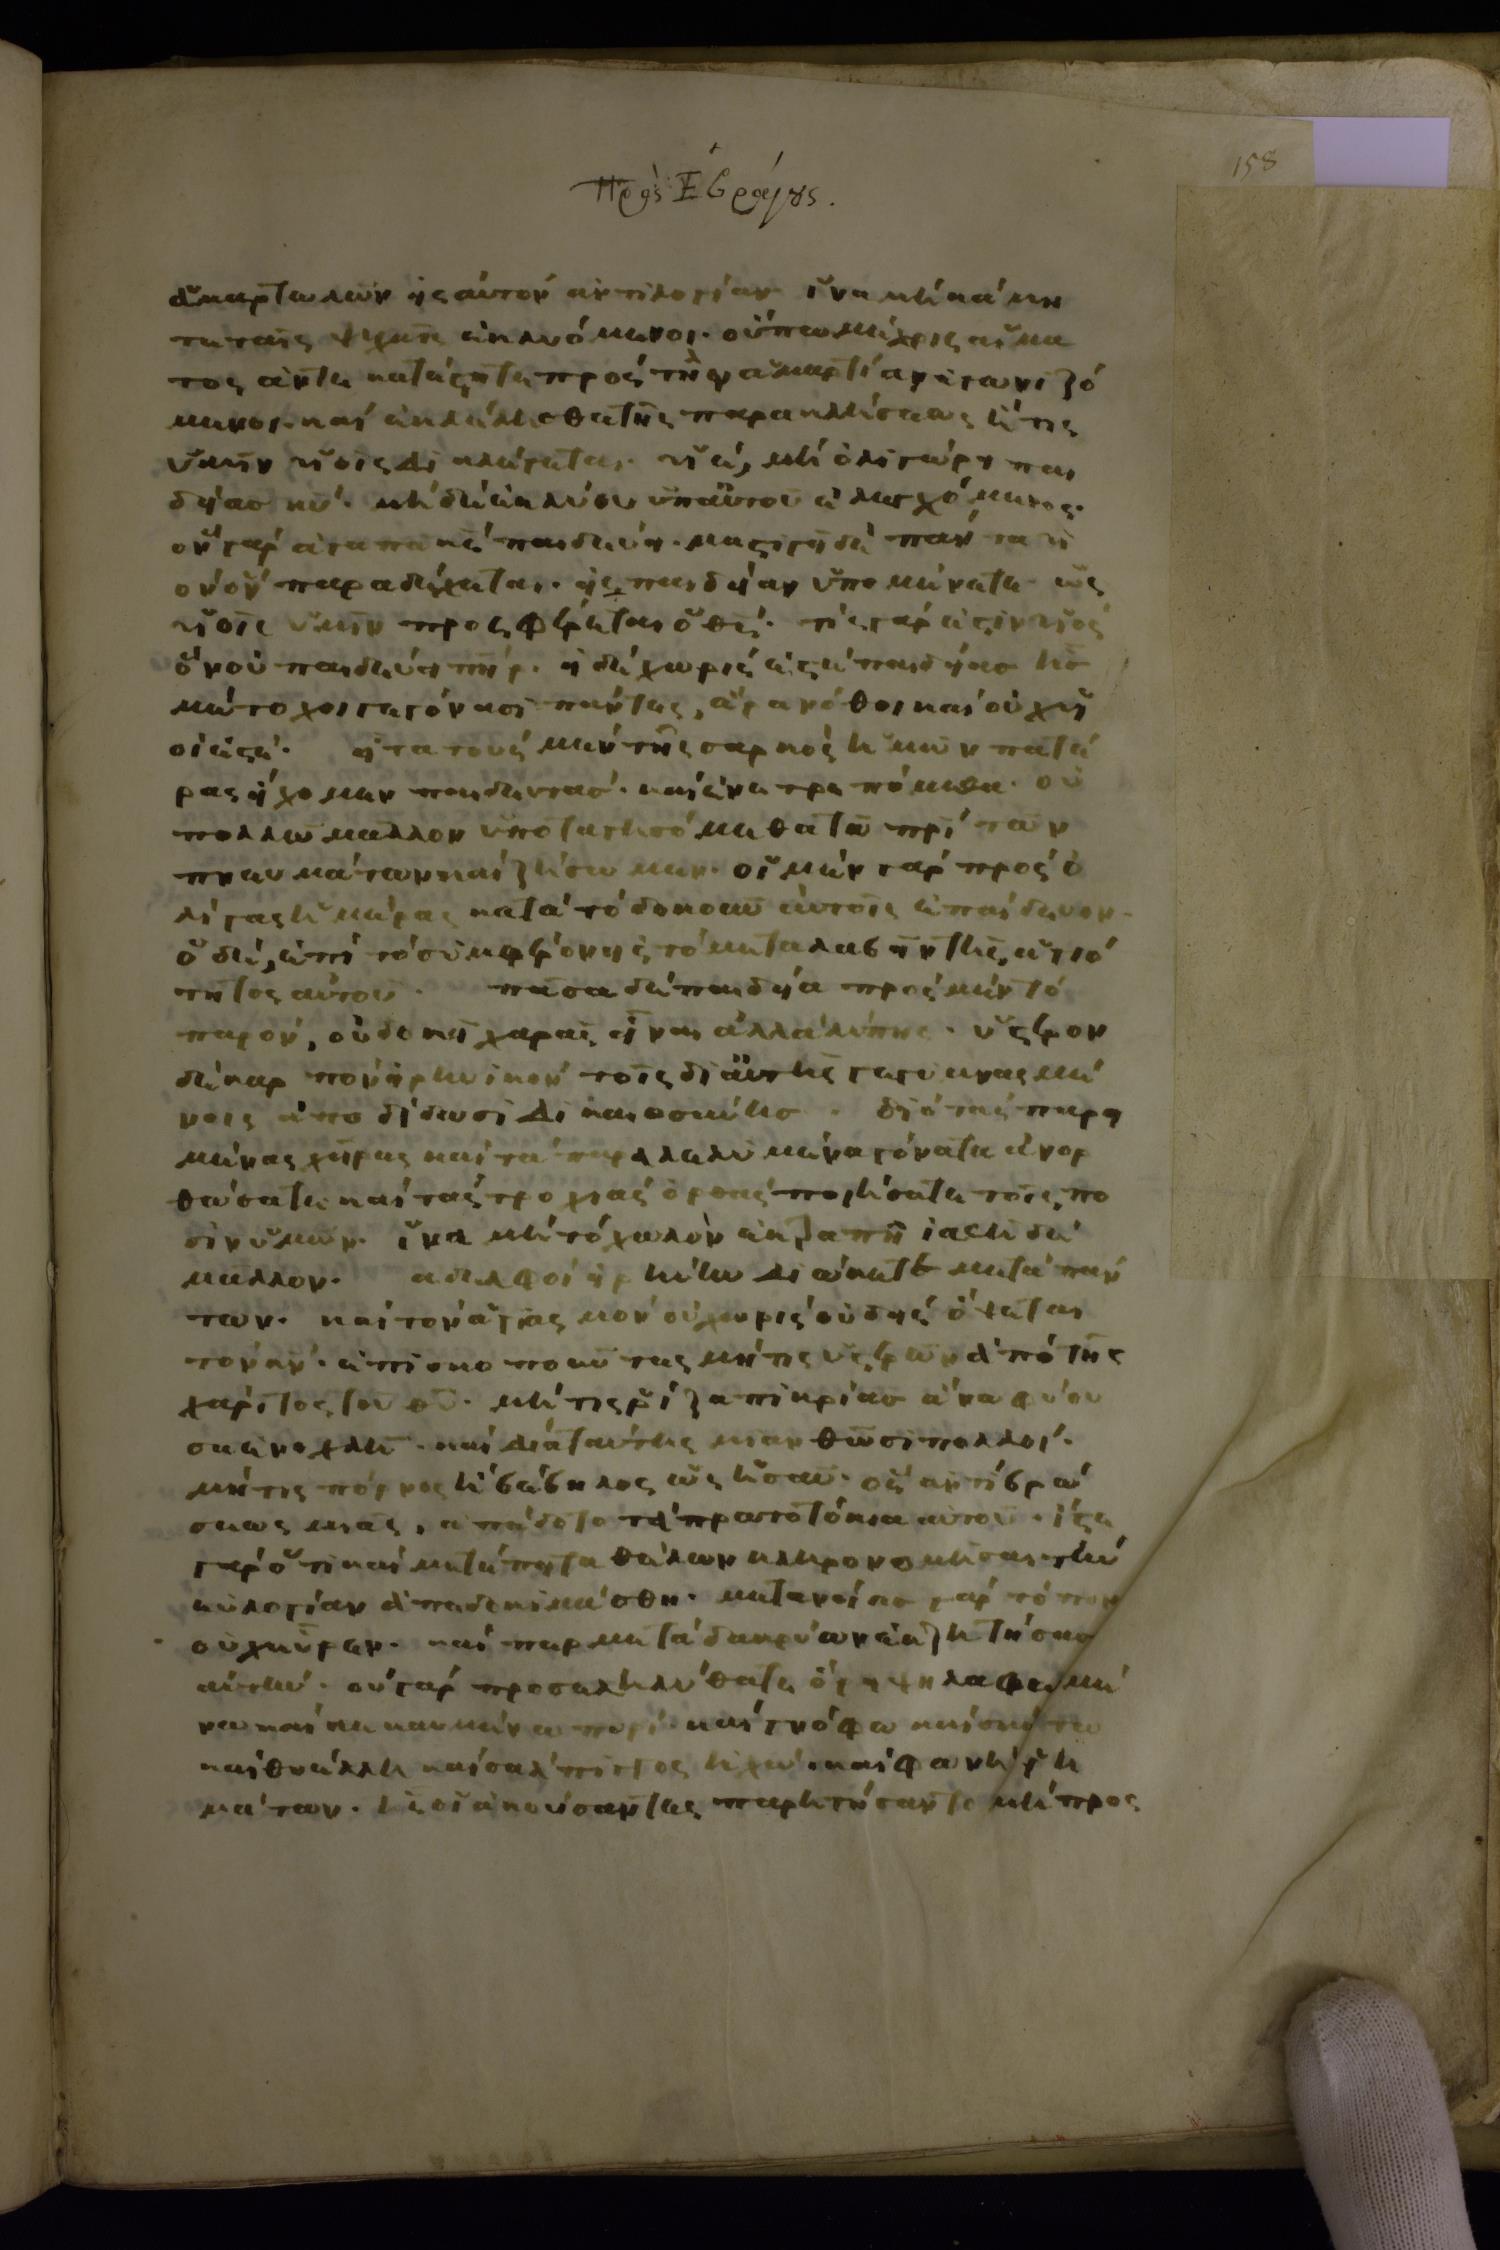 Πρὸς Ἑβραίους.
158
ἁμαρτωλῶν εἰς αὐτὸν ἀντιλογίαν ἵνα μὴ κάμη
τε ταῖς ψυχαῖς ἐκλυόμενοι. οὔπω μέχρις αἵμα
τος ἀντεκατέστητε πρὸς τὴν ἁμαρτίαν ἀγωνιζό
μενοι. καὶ ἐκλέλησθε τῆς παρακλήσεως ἥτις
ὑμῖν υἱοῖς διαλέγεται. υἱέ, μὴ ὀλιγώρει παι
δείας κυ. μὴ δὲ ἐκλύου ὑπ αὐτοῦ ἐλεγχόμενος.
ὃν γὰρ ἀγαπᾷ κς παιδεύει. μαστιγοῖ δὲ πάντα υἱ
ὸν ὃν παραδέχεται. εἰς παιδείαν ὑπομένετε ὡς
υἱοῖς ὑμῖν προσφέρεται ὁ θς. τίς γάρ ἐστιν υἱὸς
ὃν οὐ παιδεύει πηρ. εἰ δὲ χωρίς ἐστε παιδείας ἧς
μέτοχοι γεγόνασι πάντες, ἄρα νόθοι καὶ οὐχ υἱ
οί ἐστε. εἶτα τοὺς μὲν τῆς σαρκὸς ἡμῶν πατέ
ρας εἴχομεν παιδευτὰς. καὶ ἐνετρεπόμεθα. οὐ
πολλῷ μᾶλλον ὑποταγησόμεθα τῷ πρι τῶν
πνευμάτων καὶ ζήσωμεν. οἱ μὲν γὰρ πρὸς ὀ
λίγας ἡμέρας κατὰ τὸ δοκοῦν αὐτοῖς ἐπαίδευον.
ὁ δὲ, ἐπὶ τὸ συμφέρον εἰς τὸ μεταλαβεῖν τῆς ἁγιό
τητος αὐτοῦ. πᾶσα δὲ παιδεία πρὸς μὲν τὸ
παρὸν, οὐ δοκεῖ χαρᾶς εἶναι ἀλλὰ λύπης. ὕστερον
δὲ καρπὸν εἰρηνικὸν τοῖς δι αὐτῆς γεγυμνασμέ
νοις ἀποδίδωσι δικαιοσύνης. διὸ τὰς παρει
μένας χεῖρας καὶ τὰ παραλελυμένα γόνατα ἀνορ
θώσατε καὶ τὰς τροχιὰς ὀρθὰς ποιήσατε τοῖς πο
σὶν ὑμῶν. ἵνα μὴ τὸ χωλὸν ἐκτραπῇ ἰαθῇ δὲ
μᾶλλον. ἀδελφοὶ εἰρήνην διώκετε μετὰ πάν
των. καὶ τὸν ἁγιασμὸν οὗ χωρὶς οὐδεὶς ὄψεται
τὸν κν. ἐπισκοποῦντες μή τις ὑστερῶν ἀπὸ τῆς
χάριτος τοῦ θυ. μή τις ῥίζα πικρίας ἄνω φύου
σα ἐνοχλῇ. καὶ διὰ ταύτης μιανθῶσι πολλοί.
μή τις πόρνος ἢ βέβηλος ὡς ἡσαῦ. ὃς ἀντὶ βρώ
σεως μιᾶς, ἀπέδοτο τὰ πρωτοτόκια αὐτοῦ. ἴστε
γὰρ ὅτι καὶ μετέπειτα θέλων κληρονομῆσαι τὴν
εὐλογίαν ἀπεδοκιμάσθη. μετανοίας γὰρ τόπον
οὐχ εὗρεν. καίπερ μετὰ δακρύων ἐκζητήσας
αὐτήν. οὐ γὰρ προσεληλύθατε ὄρει ψηλαφωμέ
νῳ καὶ κεκαυμένῳ πυρί. καὶ γνόφῳ καὶ σκότῳ
καὶ θυέλλῃ καὶ σάλπιγγος ἤχῳ. καὶ φωνῇ ῥη
μάτων. ἧς οἱ ἀκούσαντες παρῃτήσαντο μὴ προς